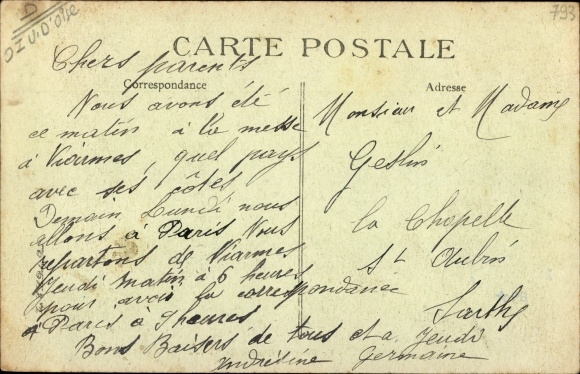 D
OZ V. D'Oise
793
CARTE POSTALE
Correspondance
Adresse
Chers parents
Nous avons été
ce matin à la messe
à Viarmes, quel pays
avec ses côtes
Demain Lundi nous
allons à Paris Nous
repartons de Viarmes
Jeudi matin à 6 heures
pour avoir la correspondance
à Paris à 9 heures
Bons Baisers de tous et a Jeudi
Germaine
Monsieur et Madame
Geslin
La Chapelle
St Aubin
Sarthe